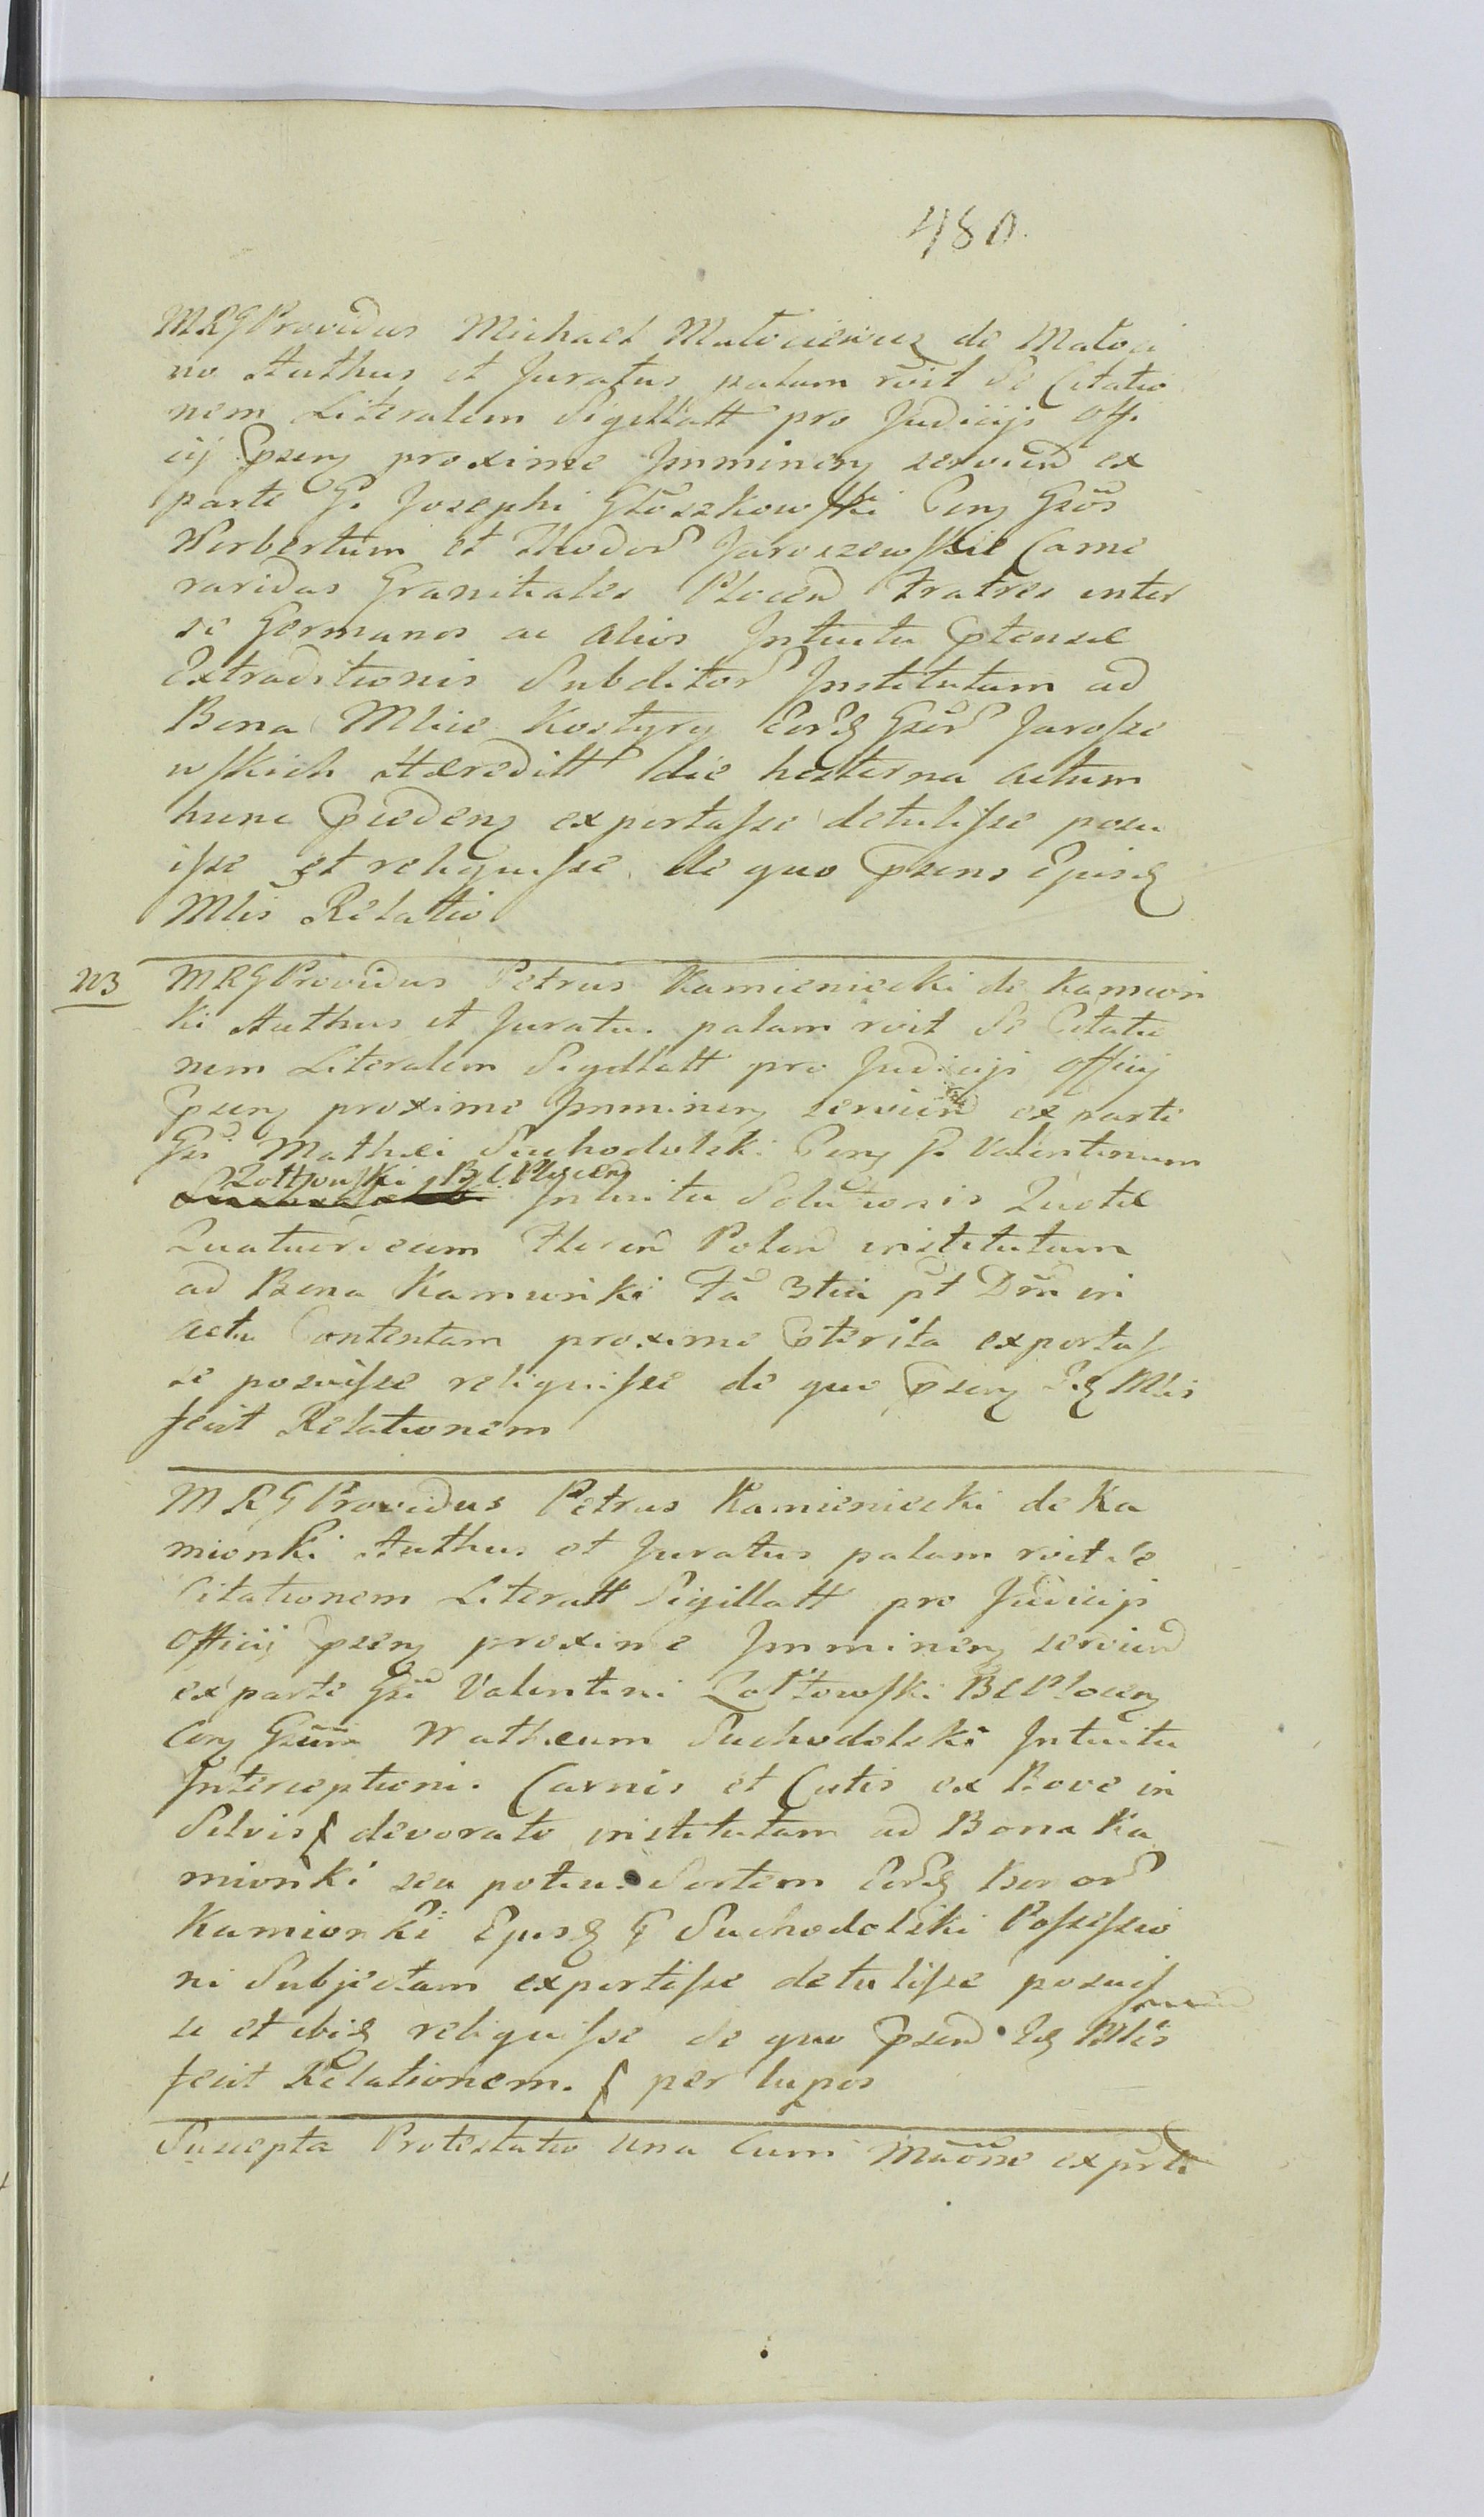 480.
MRG Providus Michael Matociewicz de Matoci
no Authus et Juratus palam rōit Se Citatio
nem Literalem Sigillatt pro Judicijs Offi
cij Psens proxime Imminens serviend ex
parte G. Josephi Głoszkowski Cons Gsos
Norbertum et Theodor Jaroszewskie Came
raridas Granitiales Plocen Fratres inter
se Germanos ac alios Intuitu Ptensae
Extraditionis Subditor Institutum ad
Bona Mlice Kostyry Eord Gsor Jarosze
wskich Haereditt die hesterna actum
hunc Pceden exportasse detulisse posu
isse et reliquisse de quo Psens Ejusq
Mlis Relatio
MRG Providus Petrus Kamieniecki de Kamion
ki Authus et Juratus palam roit Se Citatio
nem Literalem Sigillatt pro Judicijs Officij
Psens proxime Imminens serviend ex parte
Gsi Mathei Suchodolski Cons G. Valentinum
Zołtowski B C Plocens
Intuitu Solutionis Quotae
Quatuordecim Floren Polon institutum
ad Bona Kamionki Fa 3tia pt Dm in
actu Contentam proxime Pterita exportas
se posuisse reliquisse de quo Psens Mlis
fecit Relationem
MRG Providus Petrus Kamieniecki de Ka
mionki Authus et Juratus palam roit Se
Citationem Literatt Sigillatt pro Judicijs
Officij Psens proxime Imminens serviend
ex parte Gsi Valentini Zołtowski BC Plocens
Cons Gsum Matheum Suchodolski Intuitu
Interceptionis Carnis et Cutis ex Bove in
Silvis ſ devorato institutam ad Bona Ka
mionki seu potius Sortem Bonor
Kamionki Ejusq G Suchodolski Possessio
ni Subjectam exportasse detulisse posuis
se et ibiq reliquisse de quo Psen Mlis
fecit Relationem. ſ per lupos
Suscepta Protestatio una Cum Maōne ex prte